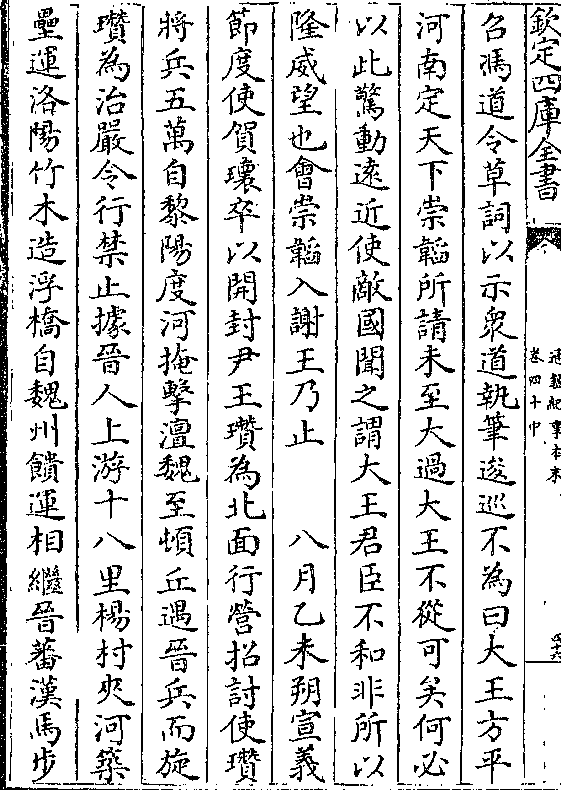 欽定四庫全書
通鑑紀事本末
卷四十中
四十六
召馮道令草詞以示衆道執筆逡巡不為曰大王方平
河南定天下崇韜所請未至大過大王不從可矣何必
以此驚動遠近使敵國聞之謂大王君臣不和非所以
隆威望也會崇韜入謝王乃止　八月乙未朔宣義
節度使賀瓌卒以開封尹王瓚為北面行營招討使瓚
將兵五萬自黎陽度河掩擊澶魏至頓丘遇晉兵而旋
瓚為治嚴令行禁止據晉人上游十八里楊村夾河築
壘運洛陽竹木造浮橋自魏州饋運相繼晉蕃漢馬步